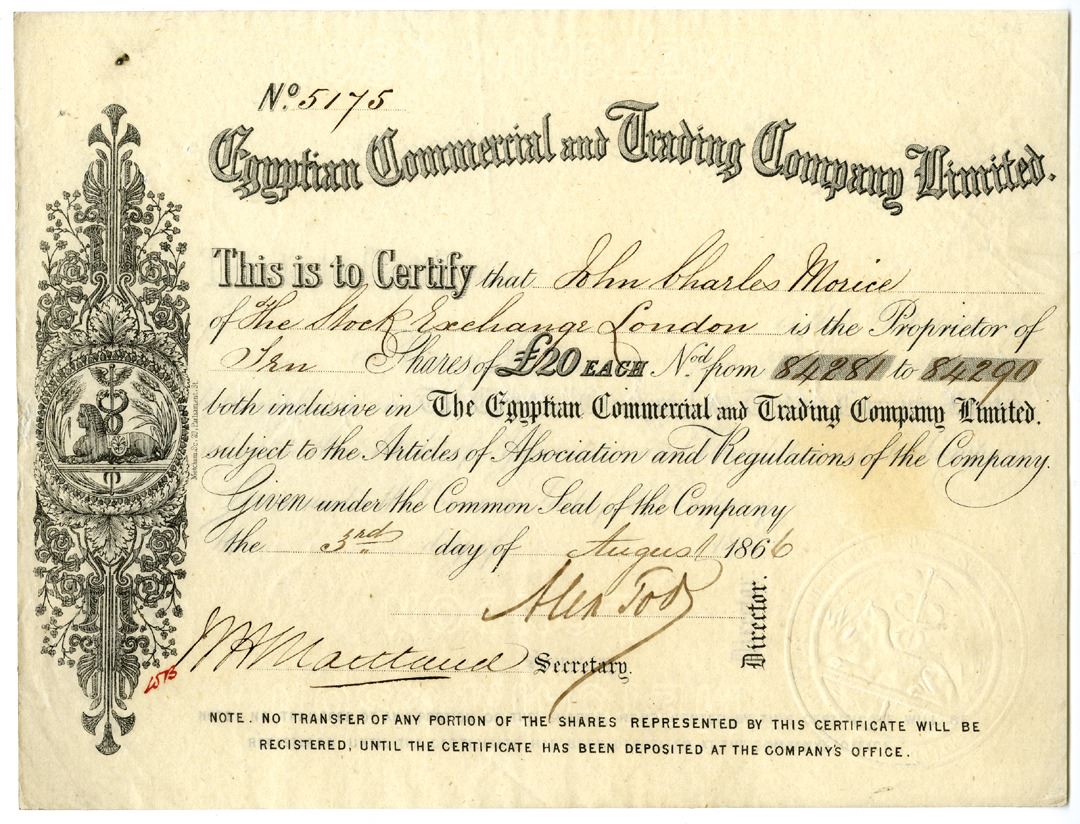 No. 5175
Egyptian Commercial and Trading Company Limited.
This is to Certify that John Charles Morice
of The Stock Exchange London is the Proprietor of
Ten Shares of £20 EACH No.d from 84281 to 84290
both inclusive in The Egyptian Commercial and Trading Company Limited.
subject to the Articles of Association and Regulations of the Company.
Given under the Common Seal of the Company
the 3rd day of August 1866
Alex Tod
Director.
Secretary.
NOTE. NO TRANSFER OF ANY PORTION OF THE SHARES REPRESENTED BY THIS CERTIFICATE WILL BE
REGISTERED, UNTIL THE CERTIFICATE HAS BEEN DEPOSITED AT THE COMPANY'S OFFICE.